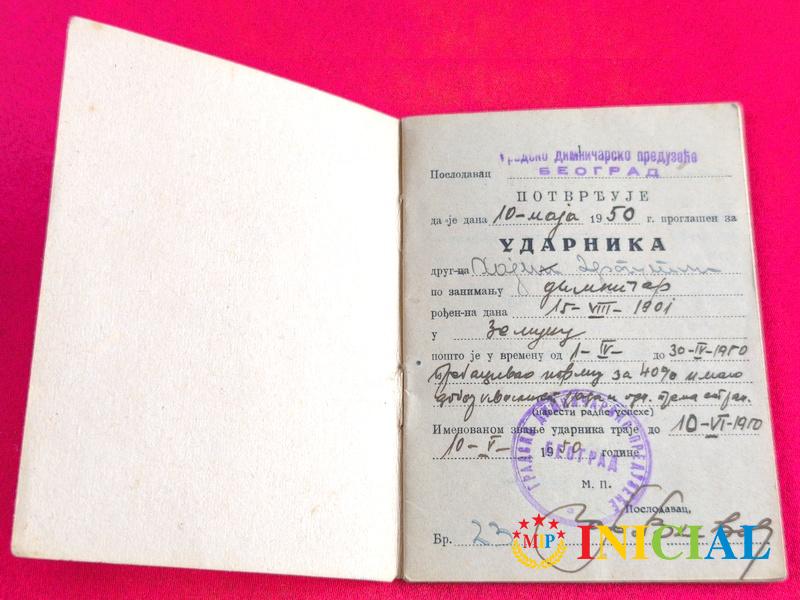 Градско димничарско предузеће
Послодавац БЕОГРАД
ПОТВРЂУЈЕ
да је дана 10-маја 1950 г. проглашен за
УДАРНИКА
друг-ца
по занимању димничар
рођен-на дана 15-VIII-1901
у Земуну
пошто је у времену од 1-IV- до 30-IV-1950
Пребацивао норму за 40% имао
добар квалитет рада и
(навести радне успехе)
Именованом звање ударника траје до 10-VI-1950
10-V- 1950 године
ГРАДСКО ДИМНИЧАРСКО ПРЕДУЗЕЋЕ
БЕОГРАД
М. П.
Послодавац,
Бр. 23
MIP INICIAL